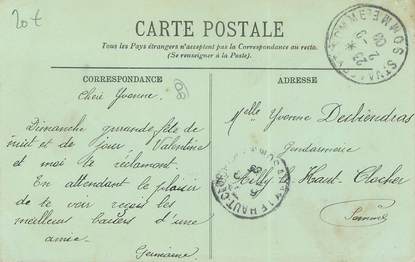 20t
CARTE POSTALE
Tous les Pays étrangers n'acceptent pas la Correspondance au recto.
(Se renseigner à la Poste).
CORRESPONDANCE
ADRESSE
Cheri Yvonne.
Dimanche grrande fête de
nuit et de jour Valentine
et moi te réclamont.
En attendant le plaisir
de te voir reçois les
meilleurs baisers d'une
amie.
Germaine
Melle Yvonne
Gendarmerie
Ailly le Haut-Clocher
Somme